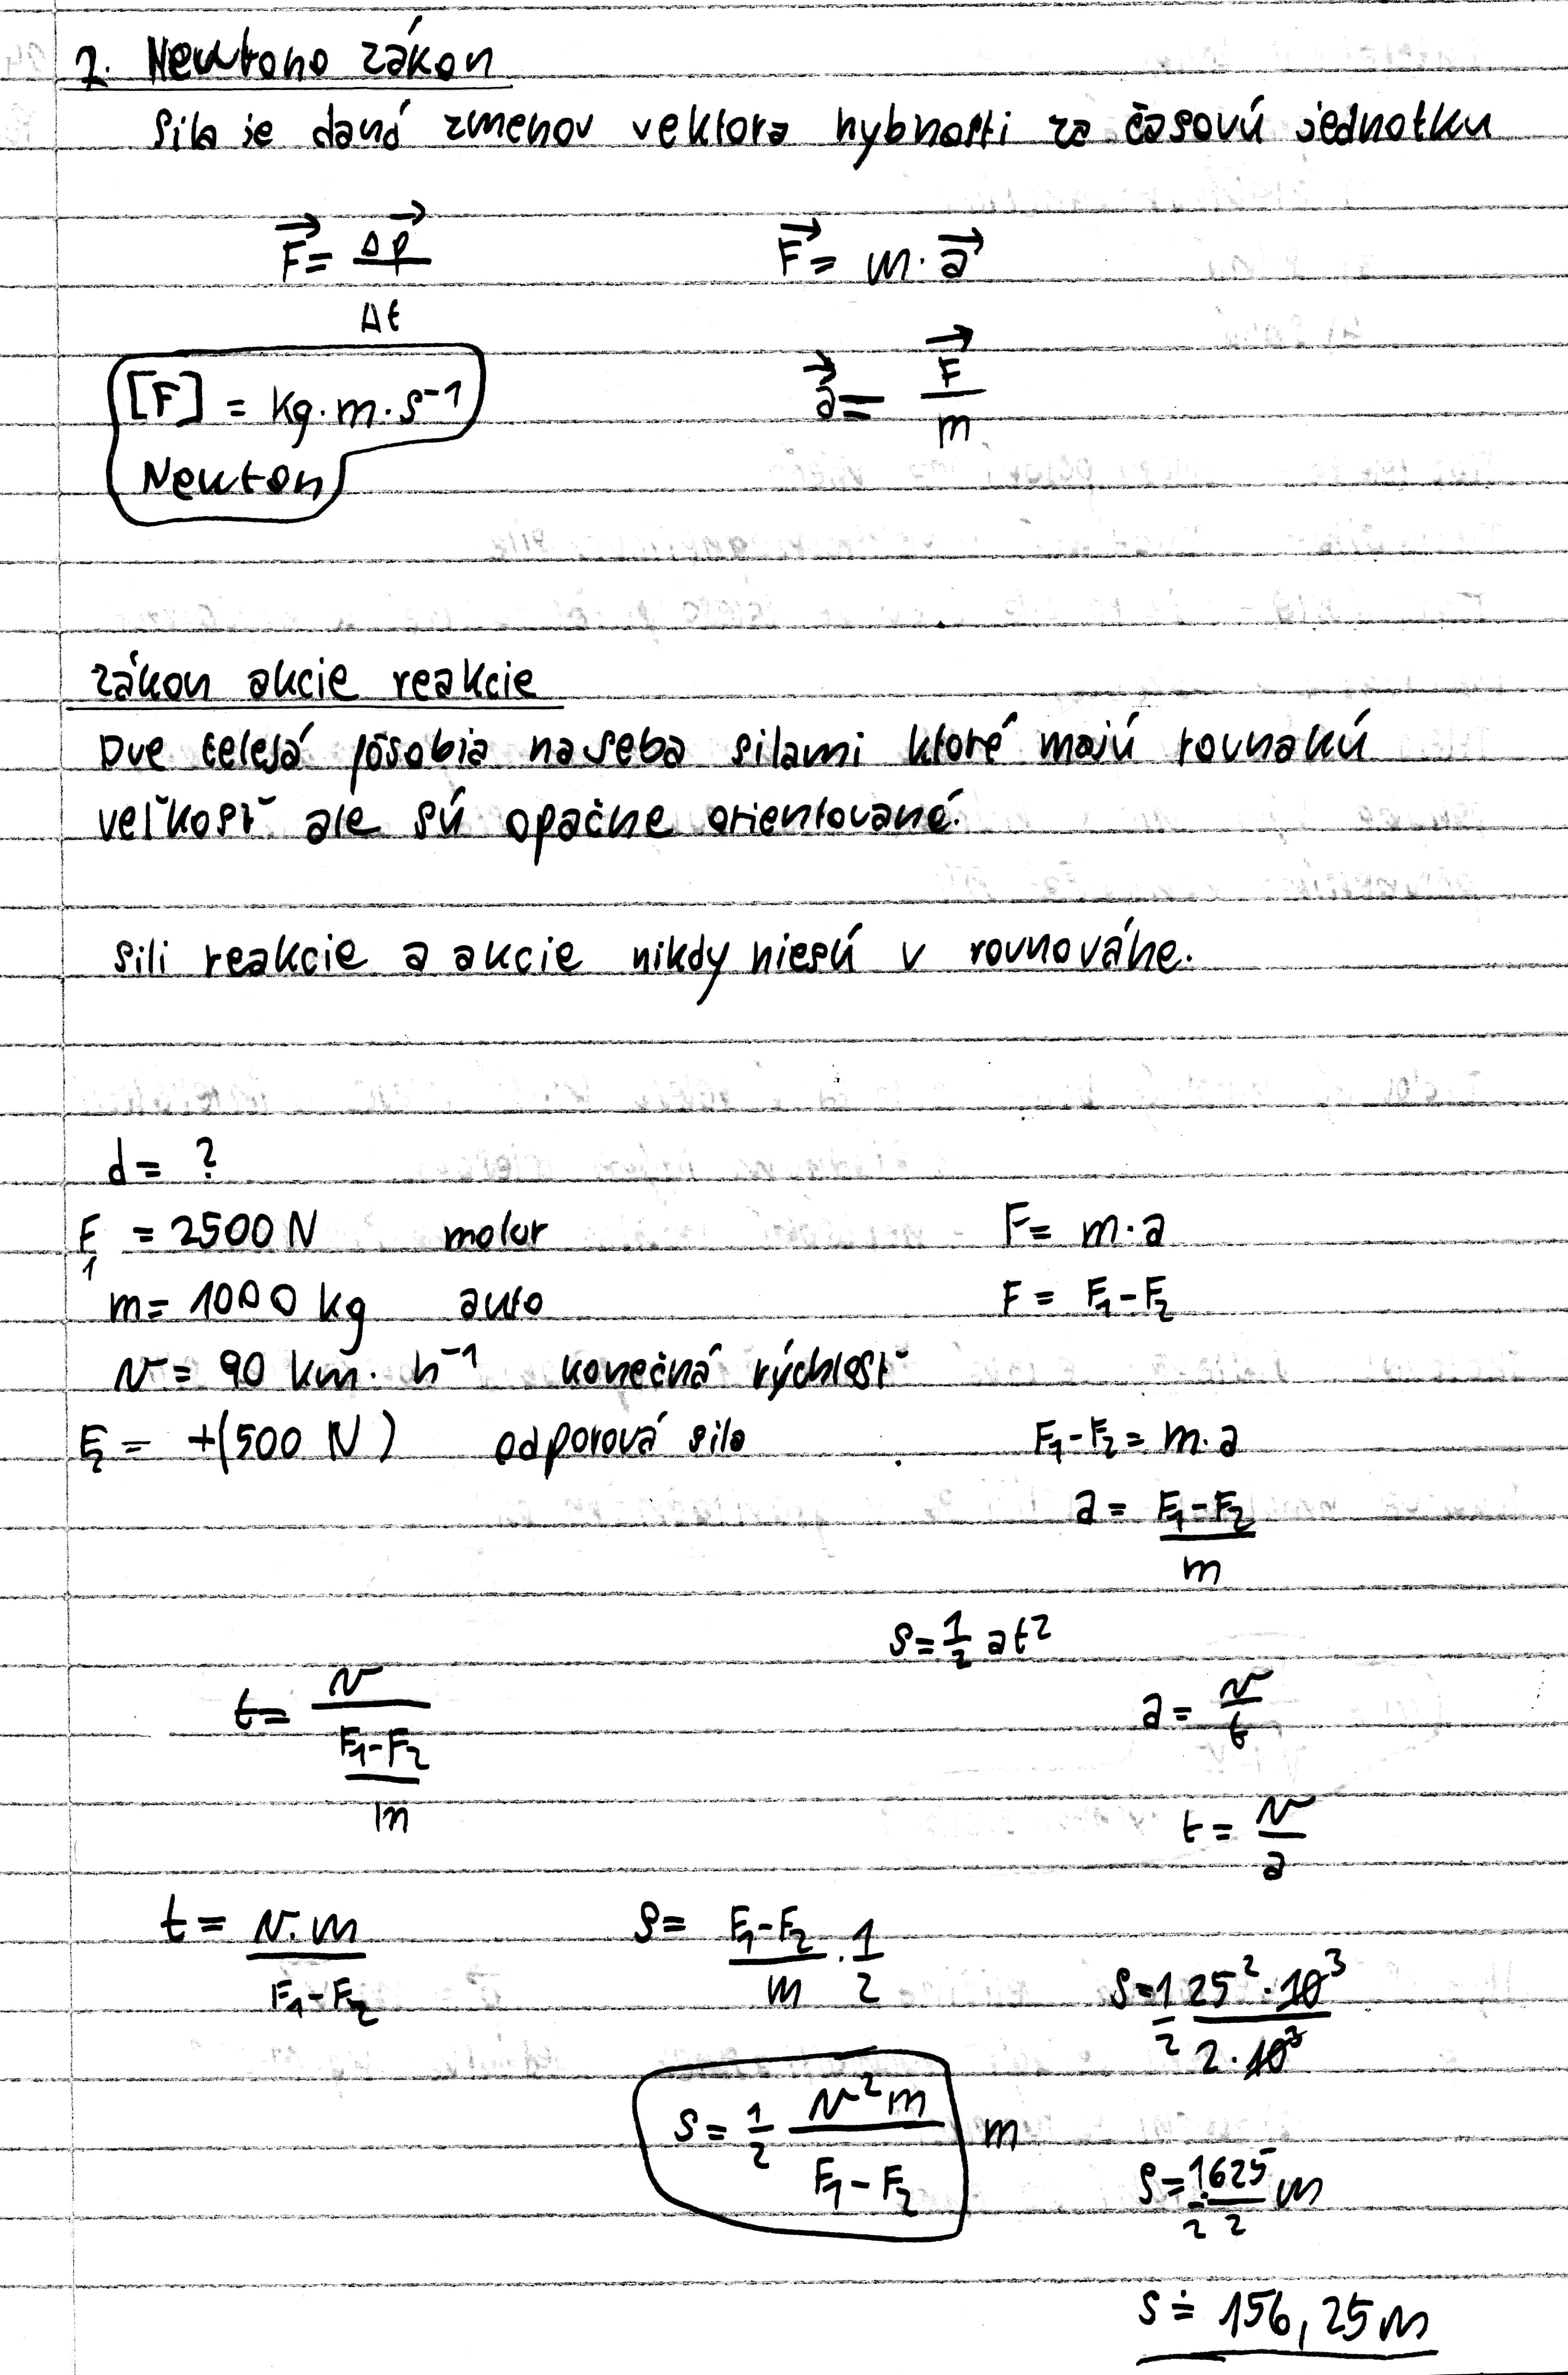 2. Newtono zákon
sila je daná zmenov vektora hybnosti za časovú jednotku
F⃗ = Δp⃗ / Δt
F⃗ = m · a⃗
[F] = kg·m·s⁻¹
Newton
a⃗ = F⃗ / m
zákon akcie reakcie
Dve telesá pôsobia na seba silami ktoré majú rovnakú
veľkosť ale sú opačne orientované.
sili reakcie a akcie nikdy niesú v rovnováhe.
d = ?
F₁ = 2500 N motor
F = m·a
m = 1000 kg auto
F = F₁-F₂
v = 90 km· h⁻¹ konečná rýchlosť
F₂ = +(500 N) odporová sila
F₁-F₂ = m·a
a = F₁-F₂ / m
s = 1/2 at²
t = v / (F₁-F₂ / m)
a = v / t
t = v / a
t = v·m / F₁-F₂
s = F₁-F₂ / m · 1/2
s = 1/2 25²·10³ / 2·10³
s = 1/2 v²m / F₁-F₂ m
s = 1/2·625/2 m
s ≐ 156,25 m